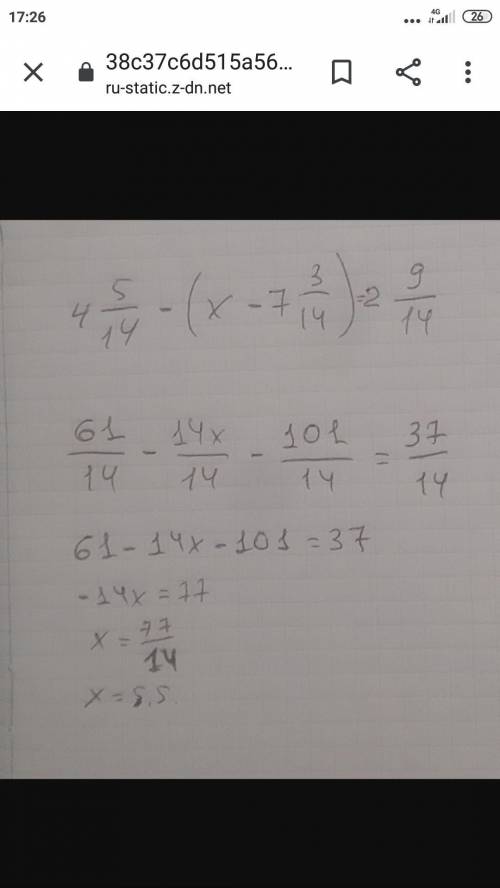 17:26 4G 26
38c37c6d515a56...
ru-static.z-dn.net
4 5/14 - (x - 7 3/14) = 2 9/14
61/14 - 14x/14 - 101/14 = 37/14
61 - 14x - 101 = 37
-14x = 77
x = 77/14
x = 5,5